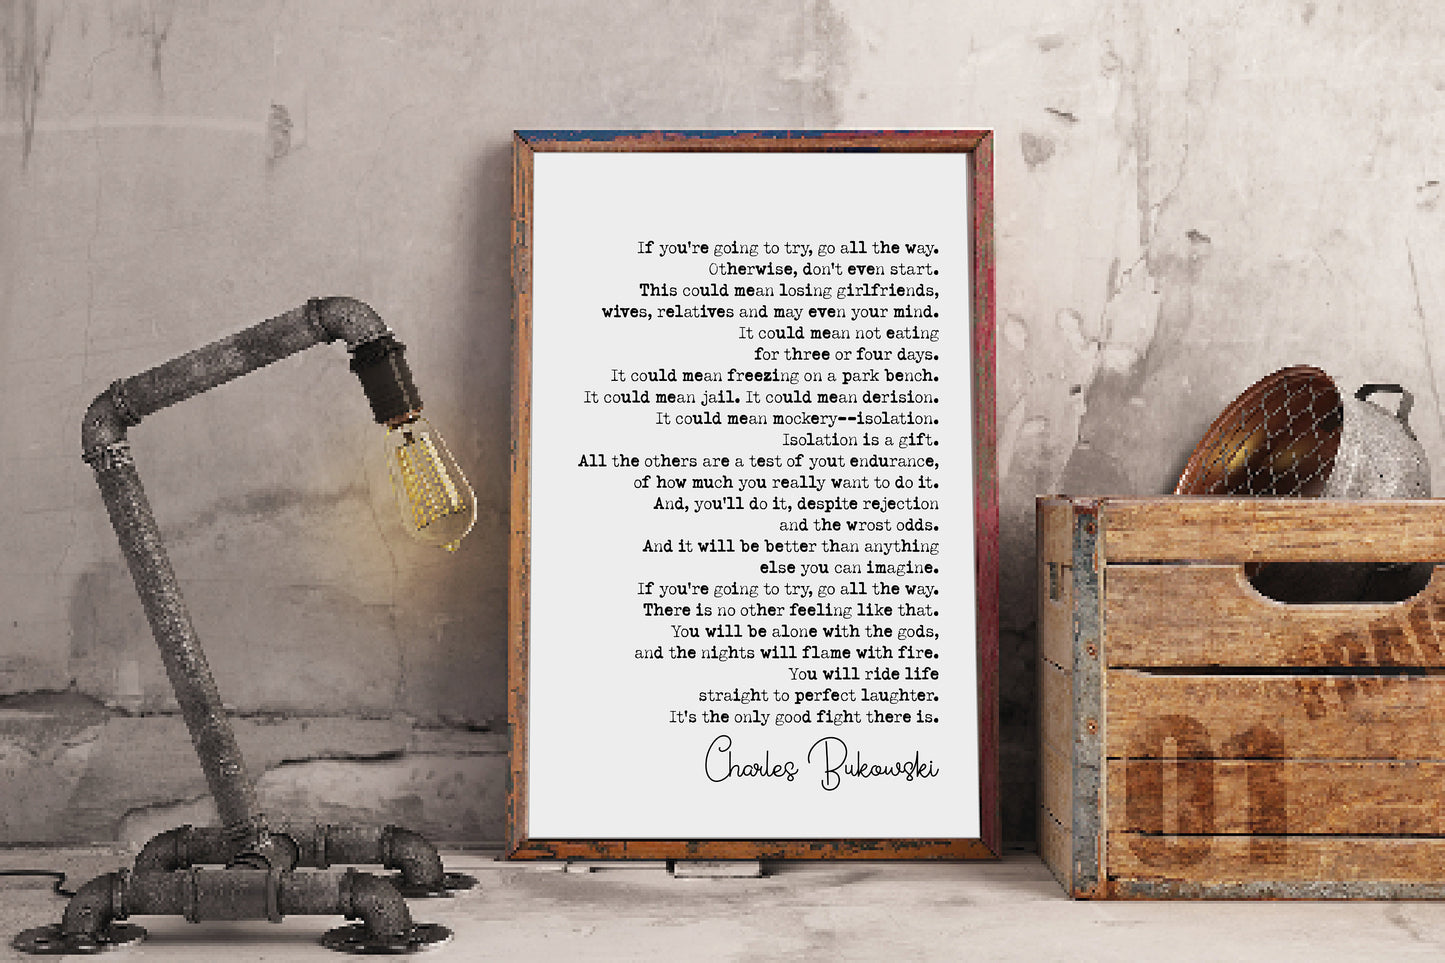 If you're going to try, go all the way.
Otherwise, don't even start.
This could mean losing girlfriends,
wives, relatives and may even your mind.
It could mean not eating
for three or four days.
It could mean freezing on a park bench.
It could mean jail. It could mean derision.
It could mean mockery--isolation.
Isolation is a gift.
All the others are a test of yout endurance,
of how much you really want to do it.
And, you'll do it, despite rejection
and the wrost odds.
And it will be better than anything
else you can imagine.
If you're going to try, go all the way.
There is no other feeling like that.
You will be alone with the gods,
and the nights will flame with fire.
You will ride life
straight to perfect laughter.
It's the only good fight there is.
Charles Bukowski
01